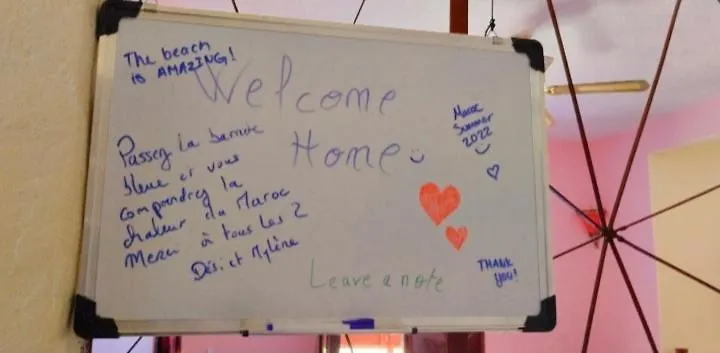 The beach
is AMAZING!
Welcome
Home
Passez la barrière
bleue et vous
comprendrez la
chaleur du Maroc
Merci à tous les 2
Dési et Mylène
Maroc
Summer
2022
Leave a note
THANK
you!